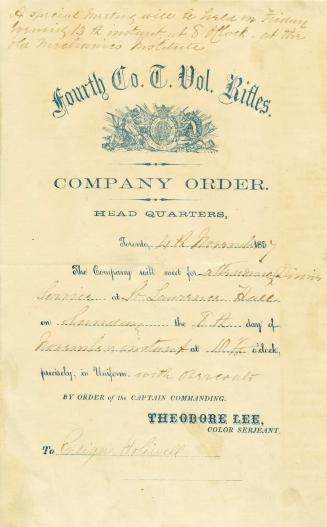 A special meeting will be held on Friday
Evening 13th instant at 8 O'Clock - at the
old Mechanics Institute
Fourth Co. T. Vol. Rifles.
COMPANY ORDER.
HEAD QUARTERS,
Toronto, 4th November 1857
The Company will meet for attending Divine
Service at St Lawrence Hall
on Sunday the 8th day of
November instant at 10½ o'clock,
precisely, in Uniform. with
BY ORDER of the CAPTAIN COMMANDING.
THEODORE LEE,
COLOR SERJEANT.
To Ensign Holiwell